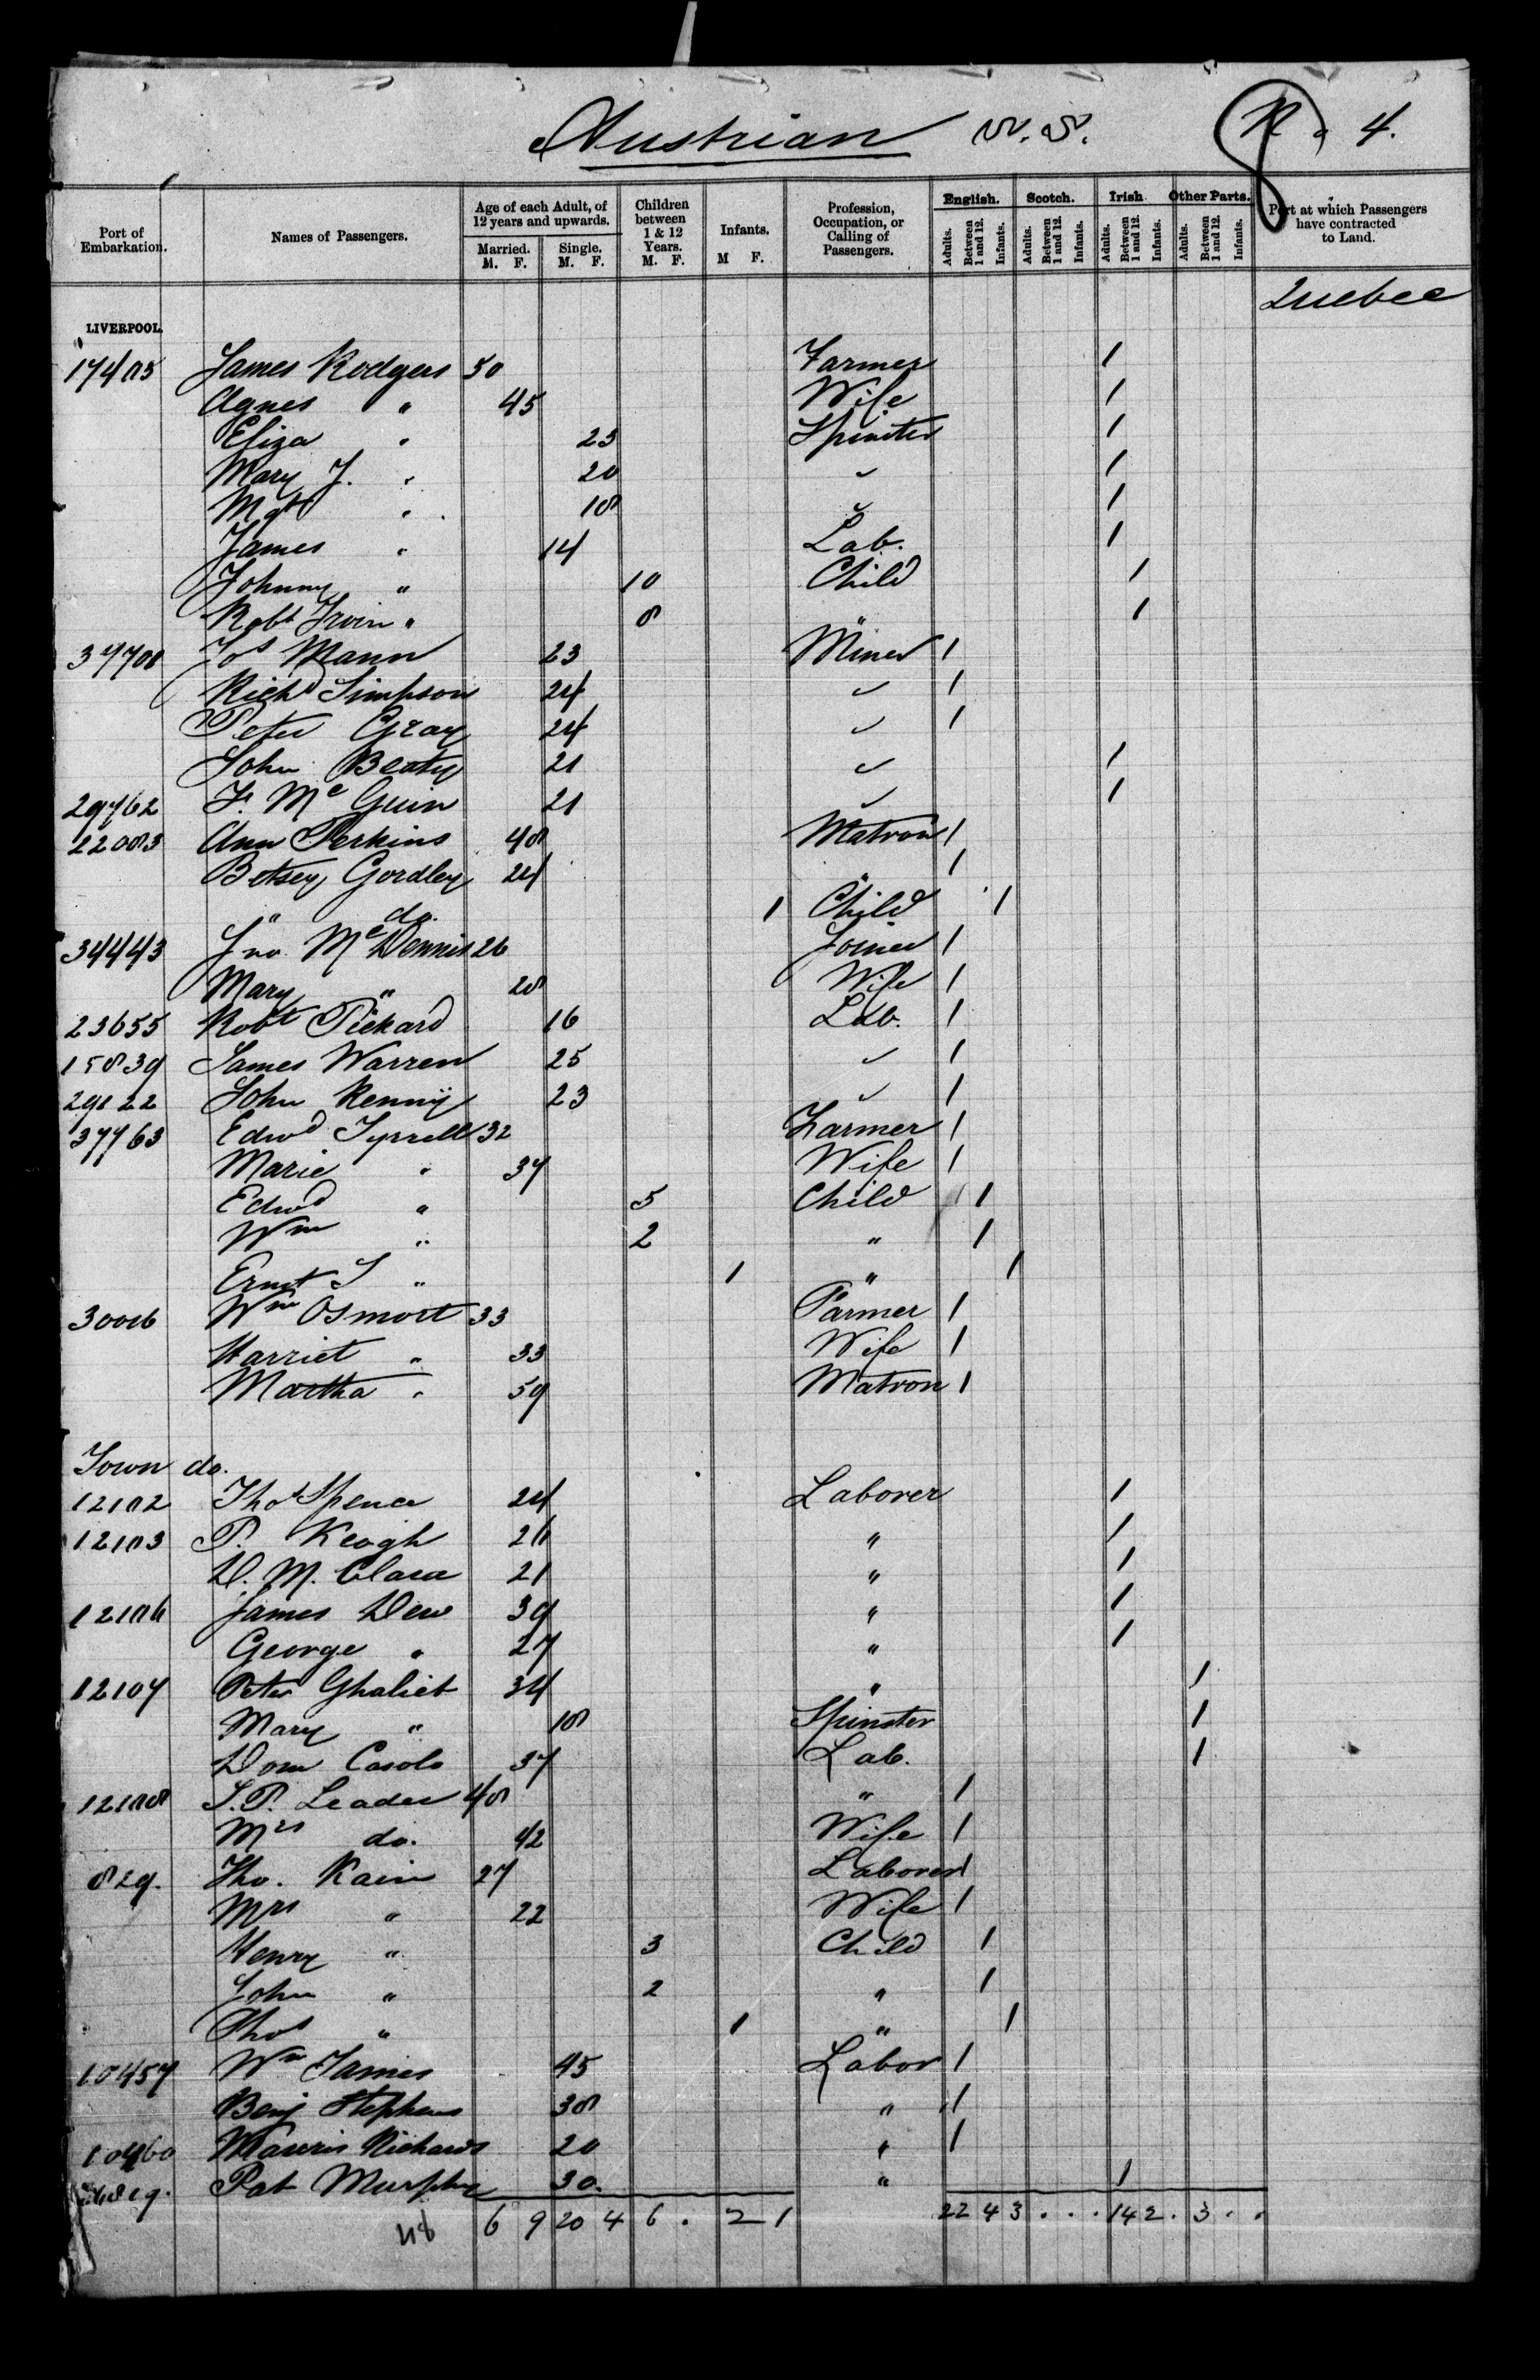 Austrian S.S. No 4.
Port of Embarkation. Names of Passengers. Age of each Adult, of 12 years and upwards. Children between 1 & 12 Years. Infants. Profession, Occupation, or Calling of Passengers. English. Scotch. Irish Other Parts. Port at which Passengers have contracted to Land.
Married. Single.
M. F. M. F. M. F. M F. Adults. Between 1 and 12. Infants. Adults. Between 1 and 12. Infants. Adults. Between 1 and 12. Infants. Adults. Between 1 and 12. Infants.
Quebec
LIVERPOOL.
17485 James Rodgers 50 Farmer 1
Agnes " 45 Wife 1
Eliza " 23 Spinster 1
Mary J. " 20 " 1
Mgt " 18 " 1
James " 14 Lab. 1
Johnny " 10 Child 1
Robt Irvin " 8 " 1
37708 Jos Mann 23 Miner 1
Richd Simpson 24 " 1
Peter Gray 24 " 1
John Beaty 21 " 1
29762 F. McGuin 21 " 1
22083 Ann Perkins 48 Matron 1
Betsey Gordley 24 " 1
" do. 1 Child 1
34443 Jno. McDennis 26 Joiner 1
Mary " 28 Wife 1
23655 Robt Pickard 16 Lab. 1
15839 James Warren 25 " 1
29122 John Kenny 23 " 1
37763 Edwd Tyrrell 32 Farmer 1
Marie " 37 Wife 1
Edwd " 5 Child 1
Wm " 2 " 1
Ernst " 1 " 1
30016 Wm Osmort 33 Farmer 1
Harriet " 33 Wife 1
Martha " 59 Matron 1
Town do.
12102 Thos Spence 24 Laborer 1
12103 P. Keogh 26 " 1
D. M. Clara 21 " 1
12106 James Dew 39 " 1
George " 27 " 1
12107 Peter Ghaliet 34 " 1
Mary " 18 Spinster 1
Dom Casolo 37 Lab. 1
12108 S. P. Leader 48 " 1
Mrs do. 42 Wife 1
829. Tho. Kain 27 Laborer 1
Mrs " 22 Wife 1
Henry " 3 Child 1
John " 2 " 1
Thos " 1 " 1
10457 Wm James 45 Labor 1
Benj Stephens 38 " 1
10460 Mauris Richards 20 " 1
Pat Murphy 30. " 1
48 6 9 20 4 6 . 2 1 22 4 3 . . . 14 2 . 3 . .